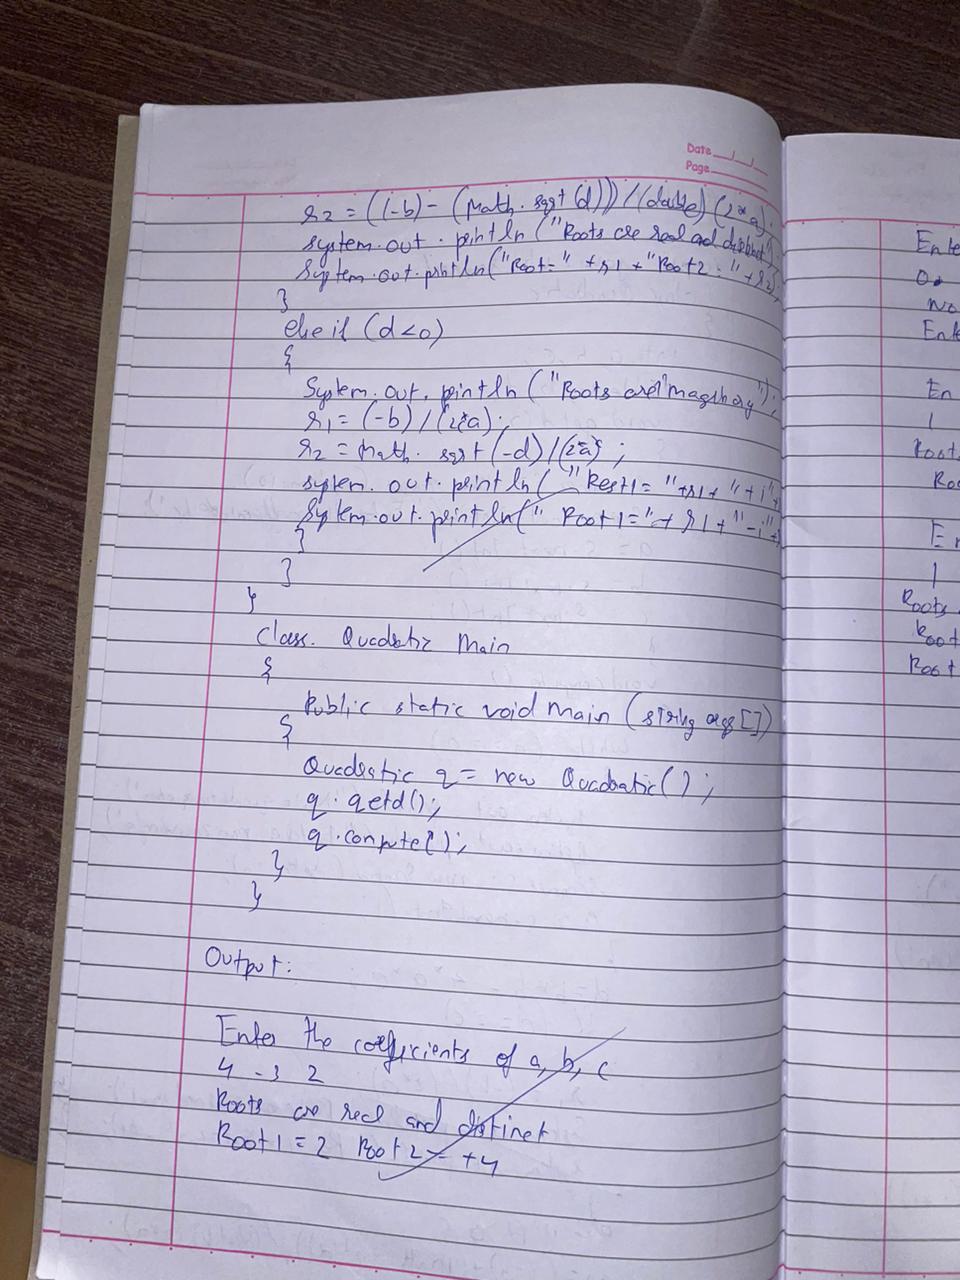 Date
Page
r2 = ((-b) - (Math. sqrt (d))) / (double) (2*a);
system. out. println ("Roots are real and distinct")
System. out. println("Root=" +r1 +"Root2 : "+r2);
}
else if (d<0)
{
System. out. println ("Roots are imaginary");
r1 = (-b) / (2*a);
r2 = Math. sqrt (-d) / (2*a);
system. out. println ( "Root1= "+r1+ "+i"+
System. out. println (" Root1="+ r1 + "-i"+
}
}
}
Class. Quadratic Main
{
Public static void main (string args [])
{
Quadratic q = new Quadratic();
q. getd();
q. compute();
}
}
Output:
Enter the coefficients of a, b, c
4 -3 2
Roots are real and distinct
Root1 = 2 Root2 = +4
Ente
No
Ente
En
1
Root
Ro
En
1
Roots
Root
Root